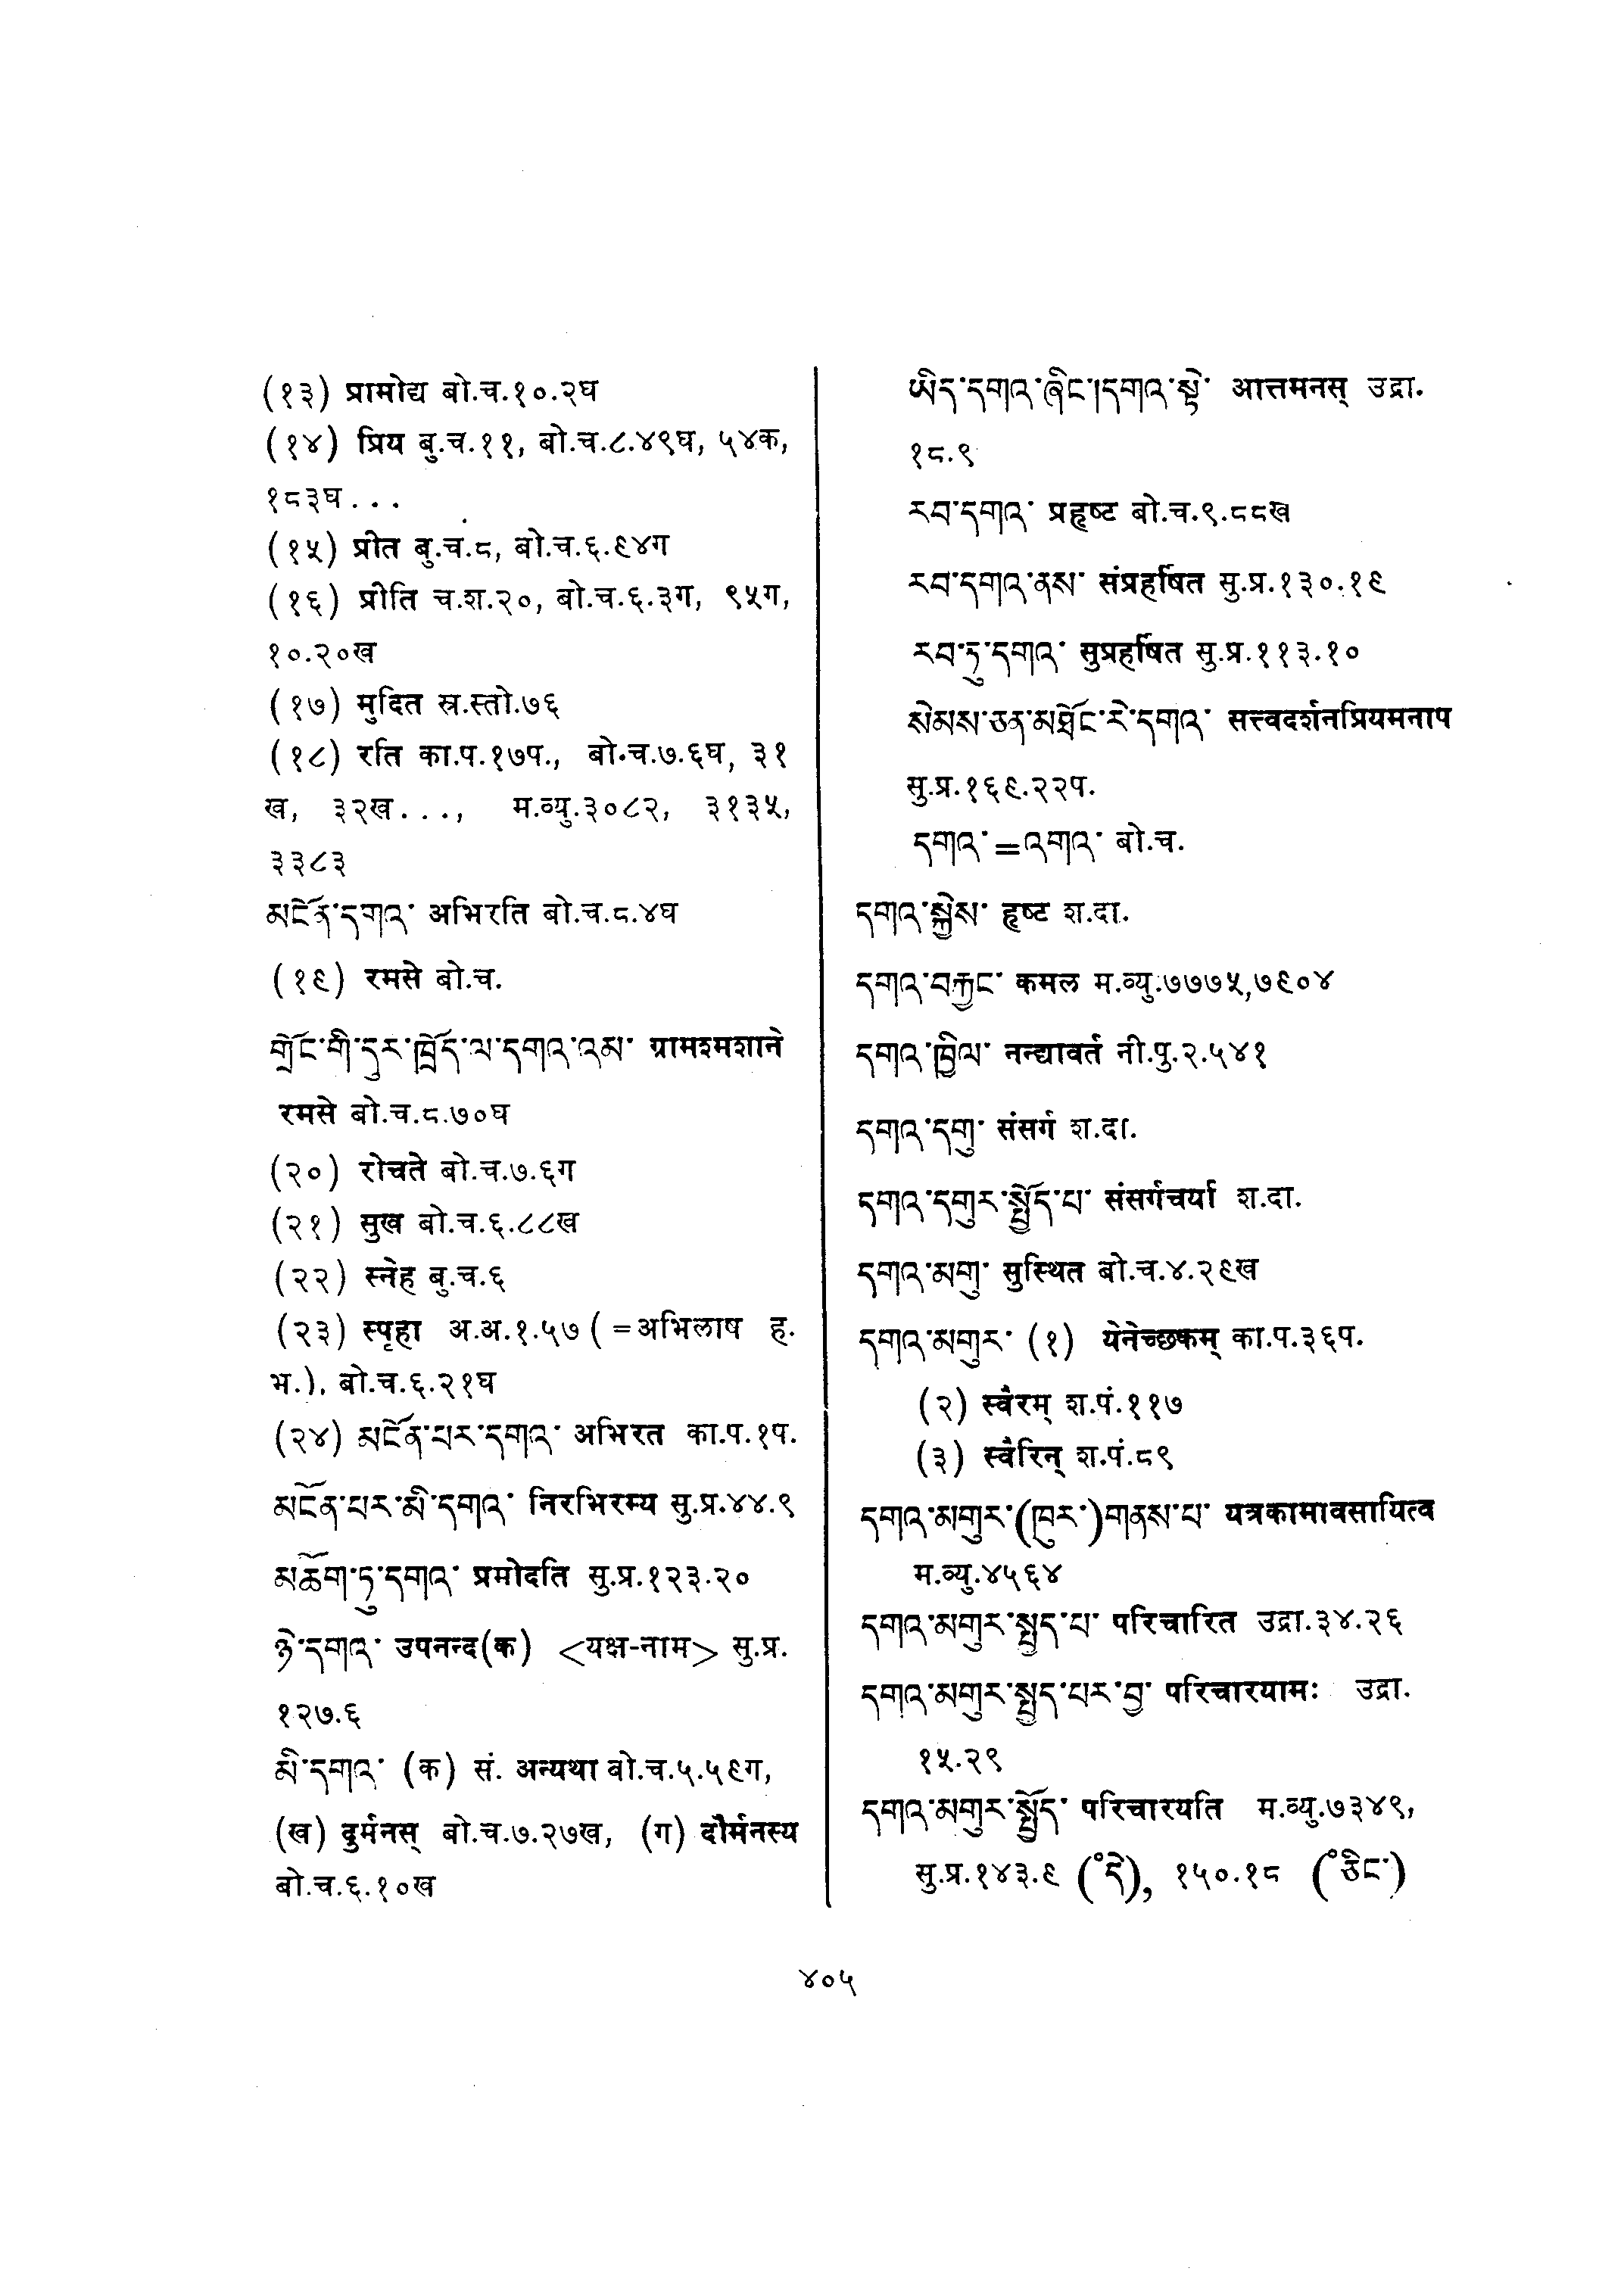 (१३) प्रामोद्य बो.च.१०.२घ
(१४) प्रिय बु.च.११, बो.च.८.४९घ, ५४क,
१८३घ...
(१५) प्रीत बु.च.८, बो.च.६.९४ग
(१६) प्रीति च.श.२०, बो.च.६.३ग, ९५ग,
१०.२०ख
(१७) मुदित स्र.स्तो.७६
(१८) रति का.प.१७प., बो.च.७.६घ, ३१
ख, ३२ख..., म.व्यु.३०८२, ३१३५,
३३८३
མངོན་དགའ་ अभिरति बो.च.८.४घ
(१९) रमसे बो.च.
གྲོང་གི་དུར་ཁྲོད་ལ་དགའ་འམ་ ग्रामश्मशाने
रमसे बो.च.८.७०घ
(२०) रोचते बो.च.७.६ग
(२१) सुख बो.च.६.८८ख
(२२) स्नेह बु.च.६
(२३) स्पृहा अ.अ.१.५७ (=अभिलाष ह.
भ.), बो.च.६.२१घ
(२४) མངོན་པར་དགའ་ अभिरत का.प.१प.
མངོན་པར་མི་དགའ་ निरभिरम्य सु.प्र.४४.९
མཆོག་ཏུ་དགའ་ प्रमोदति सु.प्र.१२३.२०
ཉེ་དགའ་ उपनन्द(क) <यक्ष-नाम> सु.प्र.
१२७.६
མི་དགའ་ (क) सं. अन्यथा बो.च.५.५९ग,
(ख) दुर्मनस् बो.च.७.२७ख, (ग) दौर्मनस्य
बो.च.६.१०ख
ཡིད་དགའ་ཞིང་།དགའ་སྟེ་ आत्तमनस् उद्रा.
१८.९
རབ་དགའ་ प्रहृष्ट बो.च.९.८८ख
རབ་དགའ་ནས་ संप्रहर्षित सु.प्र.१३०.१९
རབ་ཏུ་དགའ་ सुप्रहर्षित सु.प्र.११३.१०
སེམས་ཅན་མཐོང་རེ་དགའ་ सत्त्वदर्शनप्रियमनाप
सु.प्र.१६९.२२प.
དགའ་=འགའ་ बो.च.
དགའ་སྐྱེས་ हृष्ट श.दा.
དགའ་བརྐྱང་ कमल म.व्यु.७७७५,७९०४
དགའ་ཁྱིལ་ नन्द्यावर्त नी.पु.२.५४१
དགའ་དགུ་ संसर्ग श.दा.
དགའ་དགུར་སྤྱོད་པ་ संसर्गचर्या श.दा.
དགའ་མགུ་ सुस्थित बो.च.४.२९ख
དགའ་མགུར་ (१) येनेच्छकम् का.प.३६प.
(२) स्वैरम् श.पं.११७
(३) स्वैरिन् श.पं.८९
དགའ་མགུར་(ཁུར་)གནས་པ་ यत्रकामावसायित्व
म.व्यु.४५६४
དགའ་མགུར་སྤྱད་པ་ परिचारित उद्रा.३४.२६
དགའ་མགུར་སྤྱད་པར་བྱ་ परिचारयामः उद्रा.
१५.२९
དགའ་མགུར་སྤྱོད་ परिचारयति म.व्यु.७३४९,
सु.प्र.१४३.९ (°དེ), १५०.१८ (°ཅིང་)
४०५